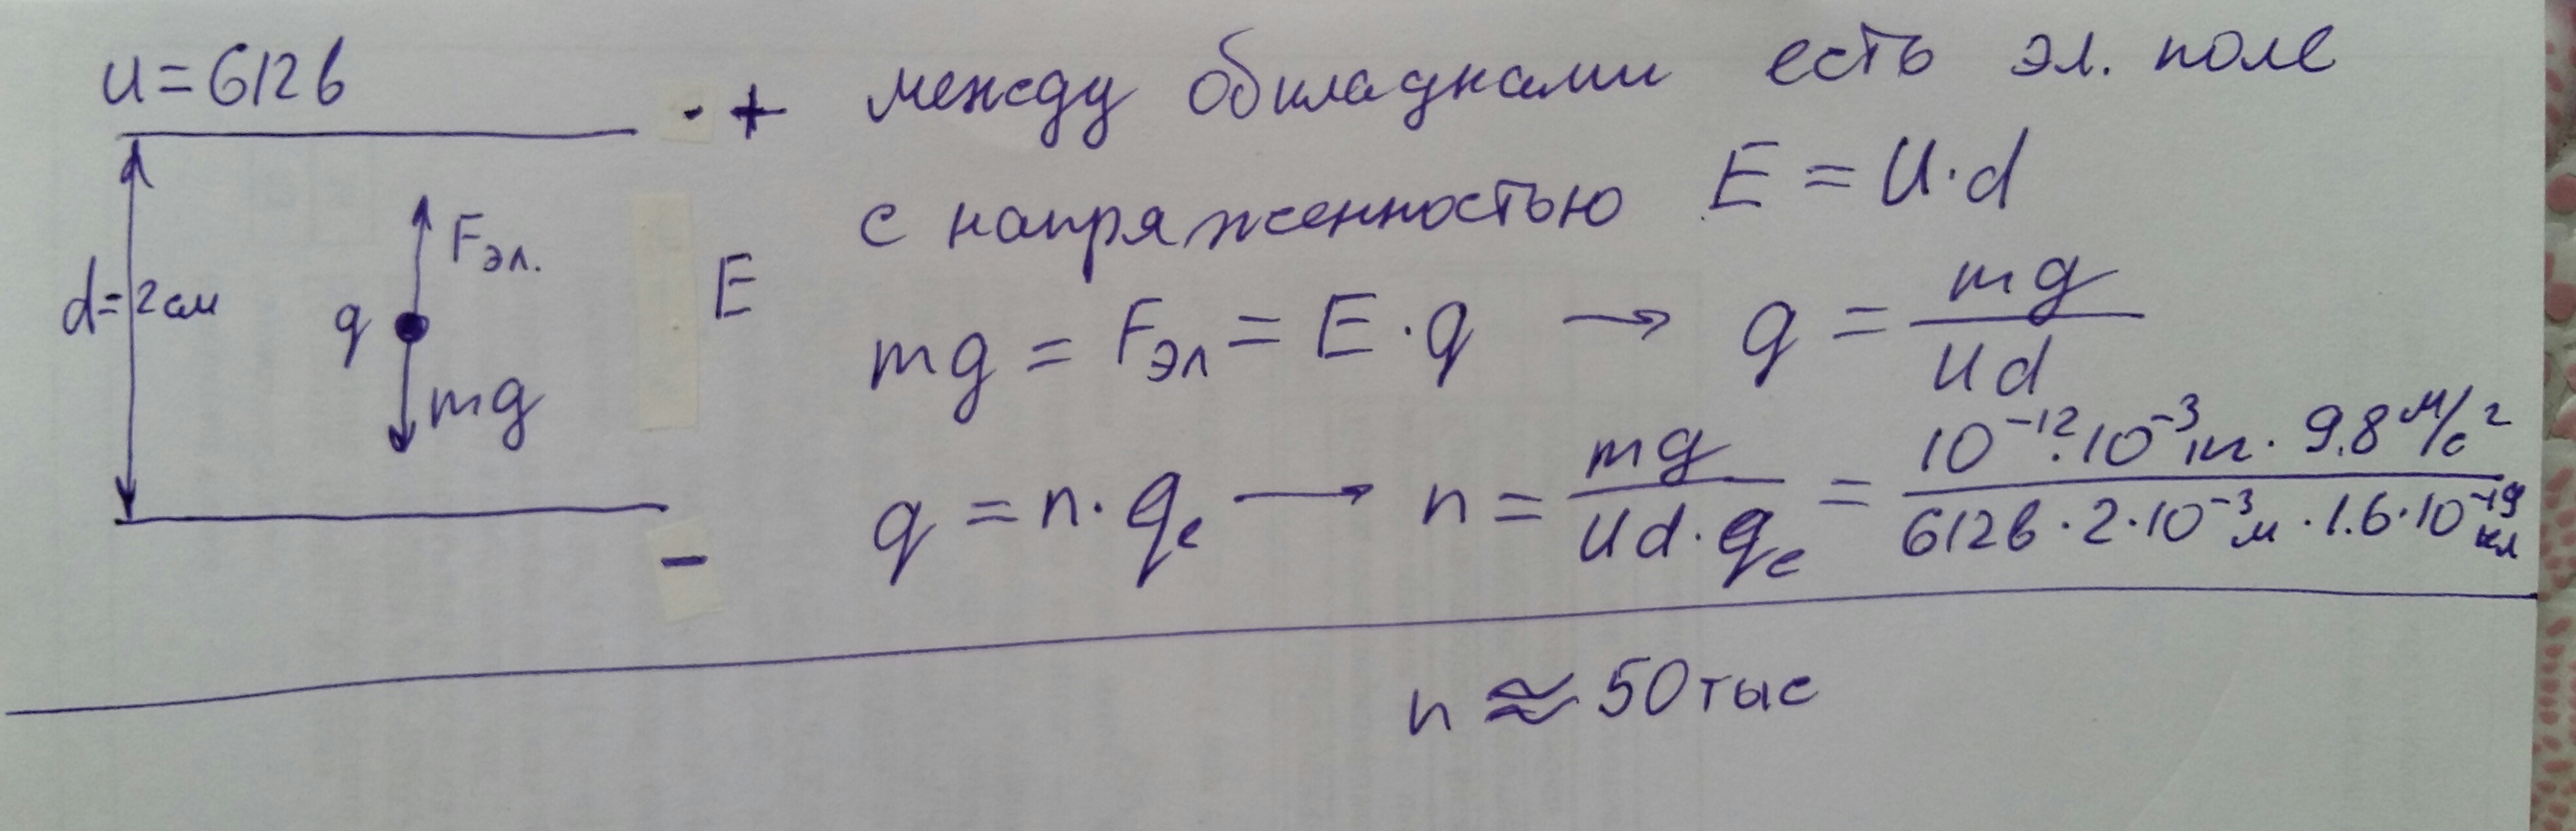 U=612в
- +
между обкладками есть эл. поле
с напряженностью E = U·d
d=2см
Fэл.
q
mg
E
mg = Fэл = E·q → q = mg/Ud
q = n·qe → n = mg/Ud·qe = 10⁻¹²·10⁻³кг·9.8м/с²/612в·2·10⁻³м·1.6·10⁻¹⁹кл
-
n ≈ 50тыс